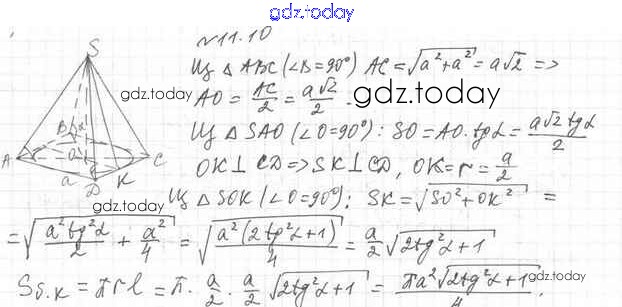 gdz.today
№11.10
Из △ABC (∠B=90°) AC = √(a²+a²) = a√2 =>
AO = AC/2 = a√2/2.
gdz.today
gdz.today
Из △SAO (∠O=90°): SO = AO·tgα = a√2 tgα/2
OK⊥CD => SK⊥CD, OK = r = a/2
Из △SOK (∠O=90°); SK = √(SO²+OK²) =
gdz.today
= √(a²tg²α/2 + a²/4) = √(a²(2tg²α+1)/4) = a/2 √(2tg²α+1)
Sб.к = πrl = π·a/2·a/2 √(2tg²α+1) = πa²√(2tg²α+1)/4
gdz.today
S
B
A
O
C
a
D
K